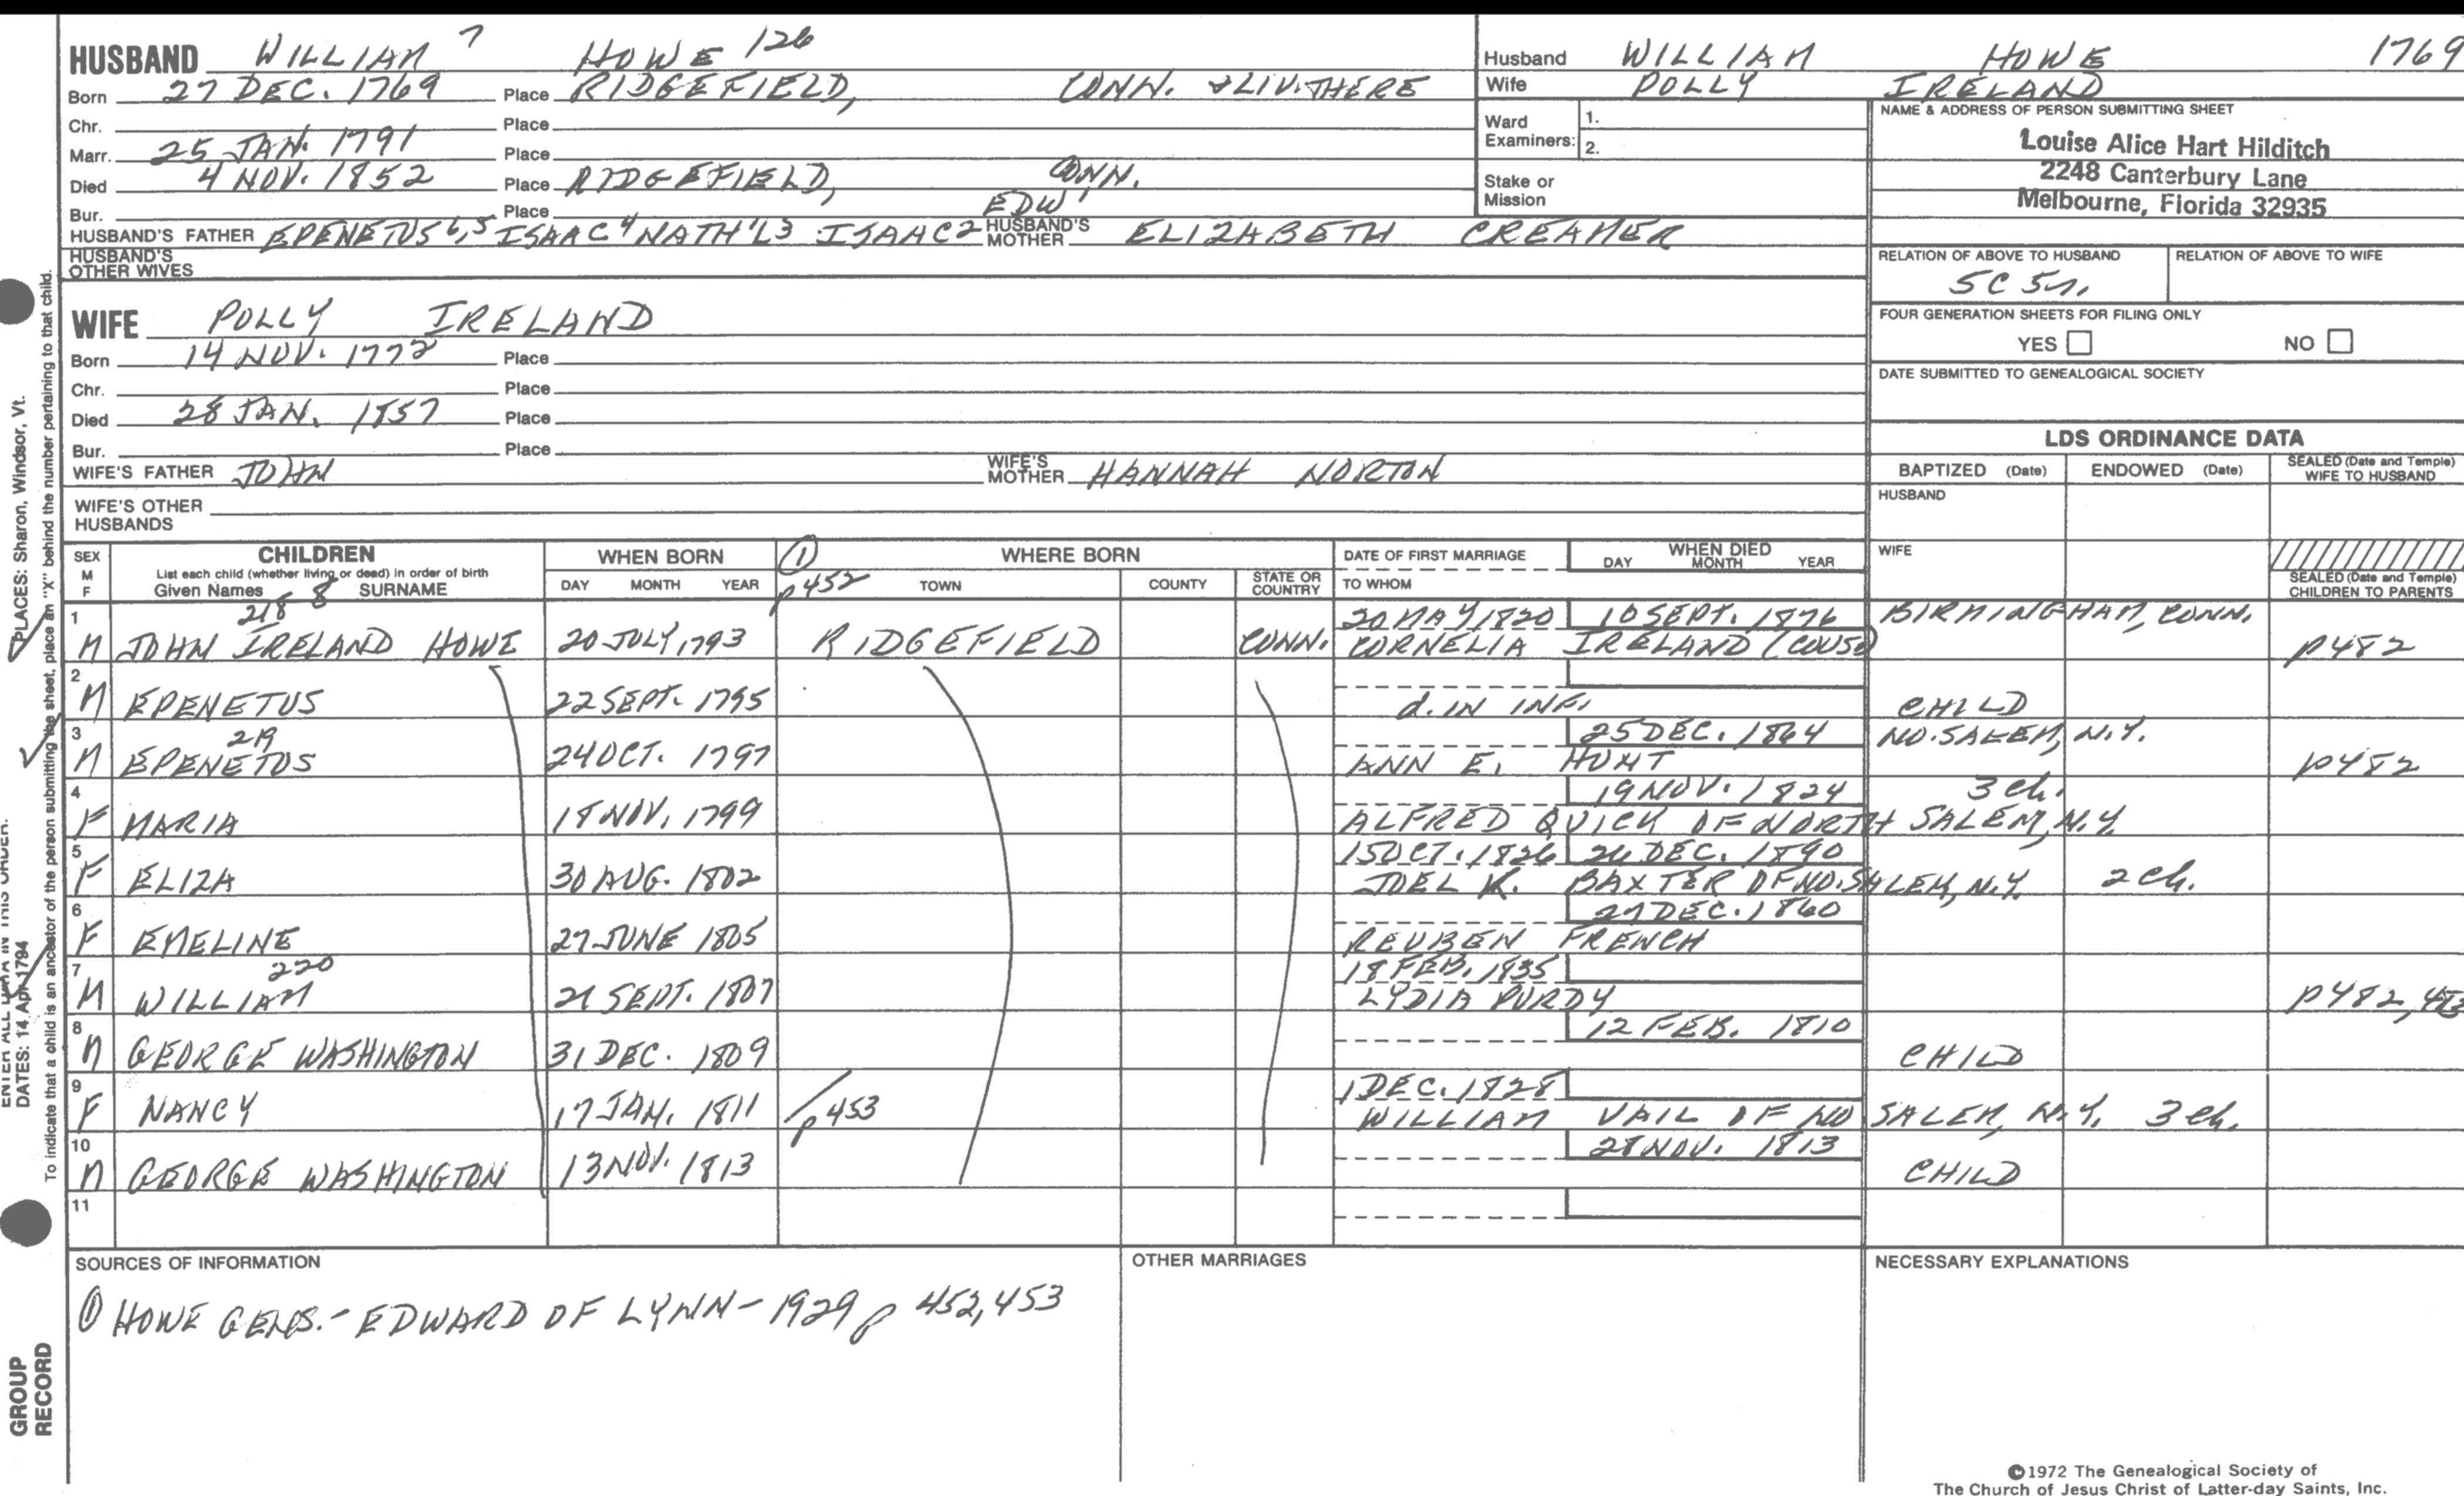 HUSBAND WILLIAM 7 HOWE 126
Born 27 DEC. 1769 Place RIDGEFIELD, CONN. & LIV. THERE
Chr. Place
Marr. 25 JAN. 1791 Place
Died 4 NOV. 1852 Place RIDGEFIELD, CONN.
Bur. Place
EDW 1
HUSBAND'S FATHER EPENETUS 6,5 ISAAC 4 NATH'L 3 ISAAC 2 HUSBAND'S MOTHER ELIZABETH CREAMER
HUSBAND'S OTHER WIVES
Husband WILLIAM HOWE 1769
Wife POLLY IRELAND
Ward Examiners: 1.
2.
Stake or Mission
NAME & ADDRESS OF PERSON SUBMITTING SHEET
Louise Alice Hart Hilditch
2248 Canterbury Lane
Melbourne, Florida 32935
RELATION OF ABOVE TO HUSBAND RELATION OF ABOVE TO WIFE
5C 5r.
FOUR GENERATION SHEETS FOR FILING ONLY
YES NO
DATE SUBMITTED TO GENEALOGICAL SOCIETY
WIFE POLLY IRELAND
Born 14 NOV. 1772 Place
Chr. Place
Died 28 JAN. 1857 Place
Bur. Place
WIFE'S FATHER JOHN WIFE'S MOTHER HANNAH NORTON
WIFE'S OTHER HUSBANDS
LDS ORDINANCE DATA
BAPTIZED (Date) ENDOWED (Date) SEALED (Date and Temple) WIFE TO HUSBAND
HUSBAND
WIFE
SEALED (Date and Temple) CHILDREN TO PARENTS
SEX M F
CHILDREN
List each child (whether living or dead) in order of birth
Given Names 8 SURNAME
WHEN BORN
DAY MONTH YEAR
① p452
WHERE BORN
TOWN COUNTY STATE OR COUNTRY
DATE OF FIRST MARRIAGE
TO WHOM
WHEN DIED
DAY MONTH YEAR
1 218 20 MAY 1820 10 SEPT. 1876 BIRMINGHAM, CONN.
M JOHN IRELAND HOWE 20 JULY, 1793 RIDGEFIELD CONN. CORNELIA IRELAND (COUSN) p482
2
M EPENETUS 22 SEPT. 1795 d. IN INF. CHILD
3 219 25 DEC. 1864 NO. SALEM, N.Y.
M EPENETUS 24 OCT. 1797 ANN E. HUNT p482
4 19 NOV. 1824 3 ch.
F MARIA 18 NOV. 1799 ALFRED QUICK OF NORTH SALEM, N.Y.
5 15 OCT. 1826 26 DEC. 1890
F ELIZA 30 AUG. 1802 JOEL K. BAXTER OF NO. SALEM, N.Y. 2 ch.
6 27 DEC. 1860
F EMELINE 27 JUNE 1805 REUBEN FRENCH
7 220 18 FEB. 1835
M WILLIAM 21 SEPT. 1807 LYDIA PURDY p482, 483
8 12 FEB. 1810
M GEORGE WASHINGTON 31 DEC. 1809 CHILD
9 1 DEC. 1828
F NANCY 17 JAN. 1811 p453 WILLIAM VAIL OF NO. SALEM, N.Y. 3 ch.
10 28 NOV. 1813
M GEORGE WASHINGTON 13 NOV. 1813 CHILD
11
SOURCES OF INFORMATION OTHER MARRIAGES NECESSARY EXPLANATIONS
① HOWE GENS. - EDWARD OF LYNN - 1929 p 452, 453
©1972 The Genealogical Society of
The Church of Jesus Christ of Latter-day Saints, Inc.
PLACES: Sharon, Windsor, Vt.
ENTER ALL DATA IN THIS ORDER:
DATES: 14 Apr 1794
To indicate that a child is an ancestor of the person submitting the sheet, place an "X" behind the number pertaining to that child.
GROUP RECORD